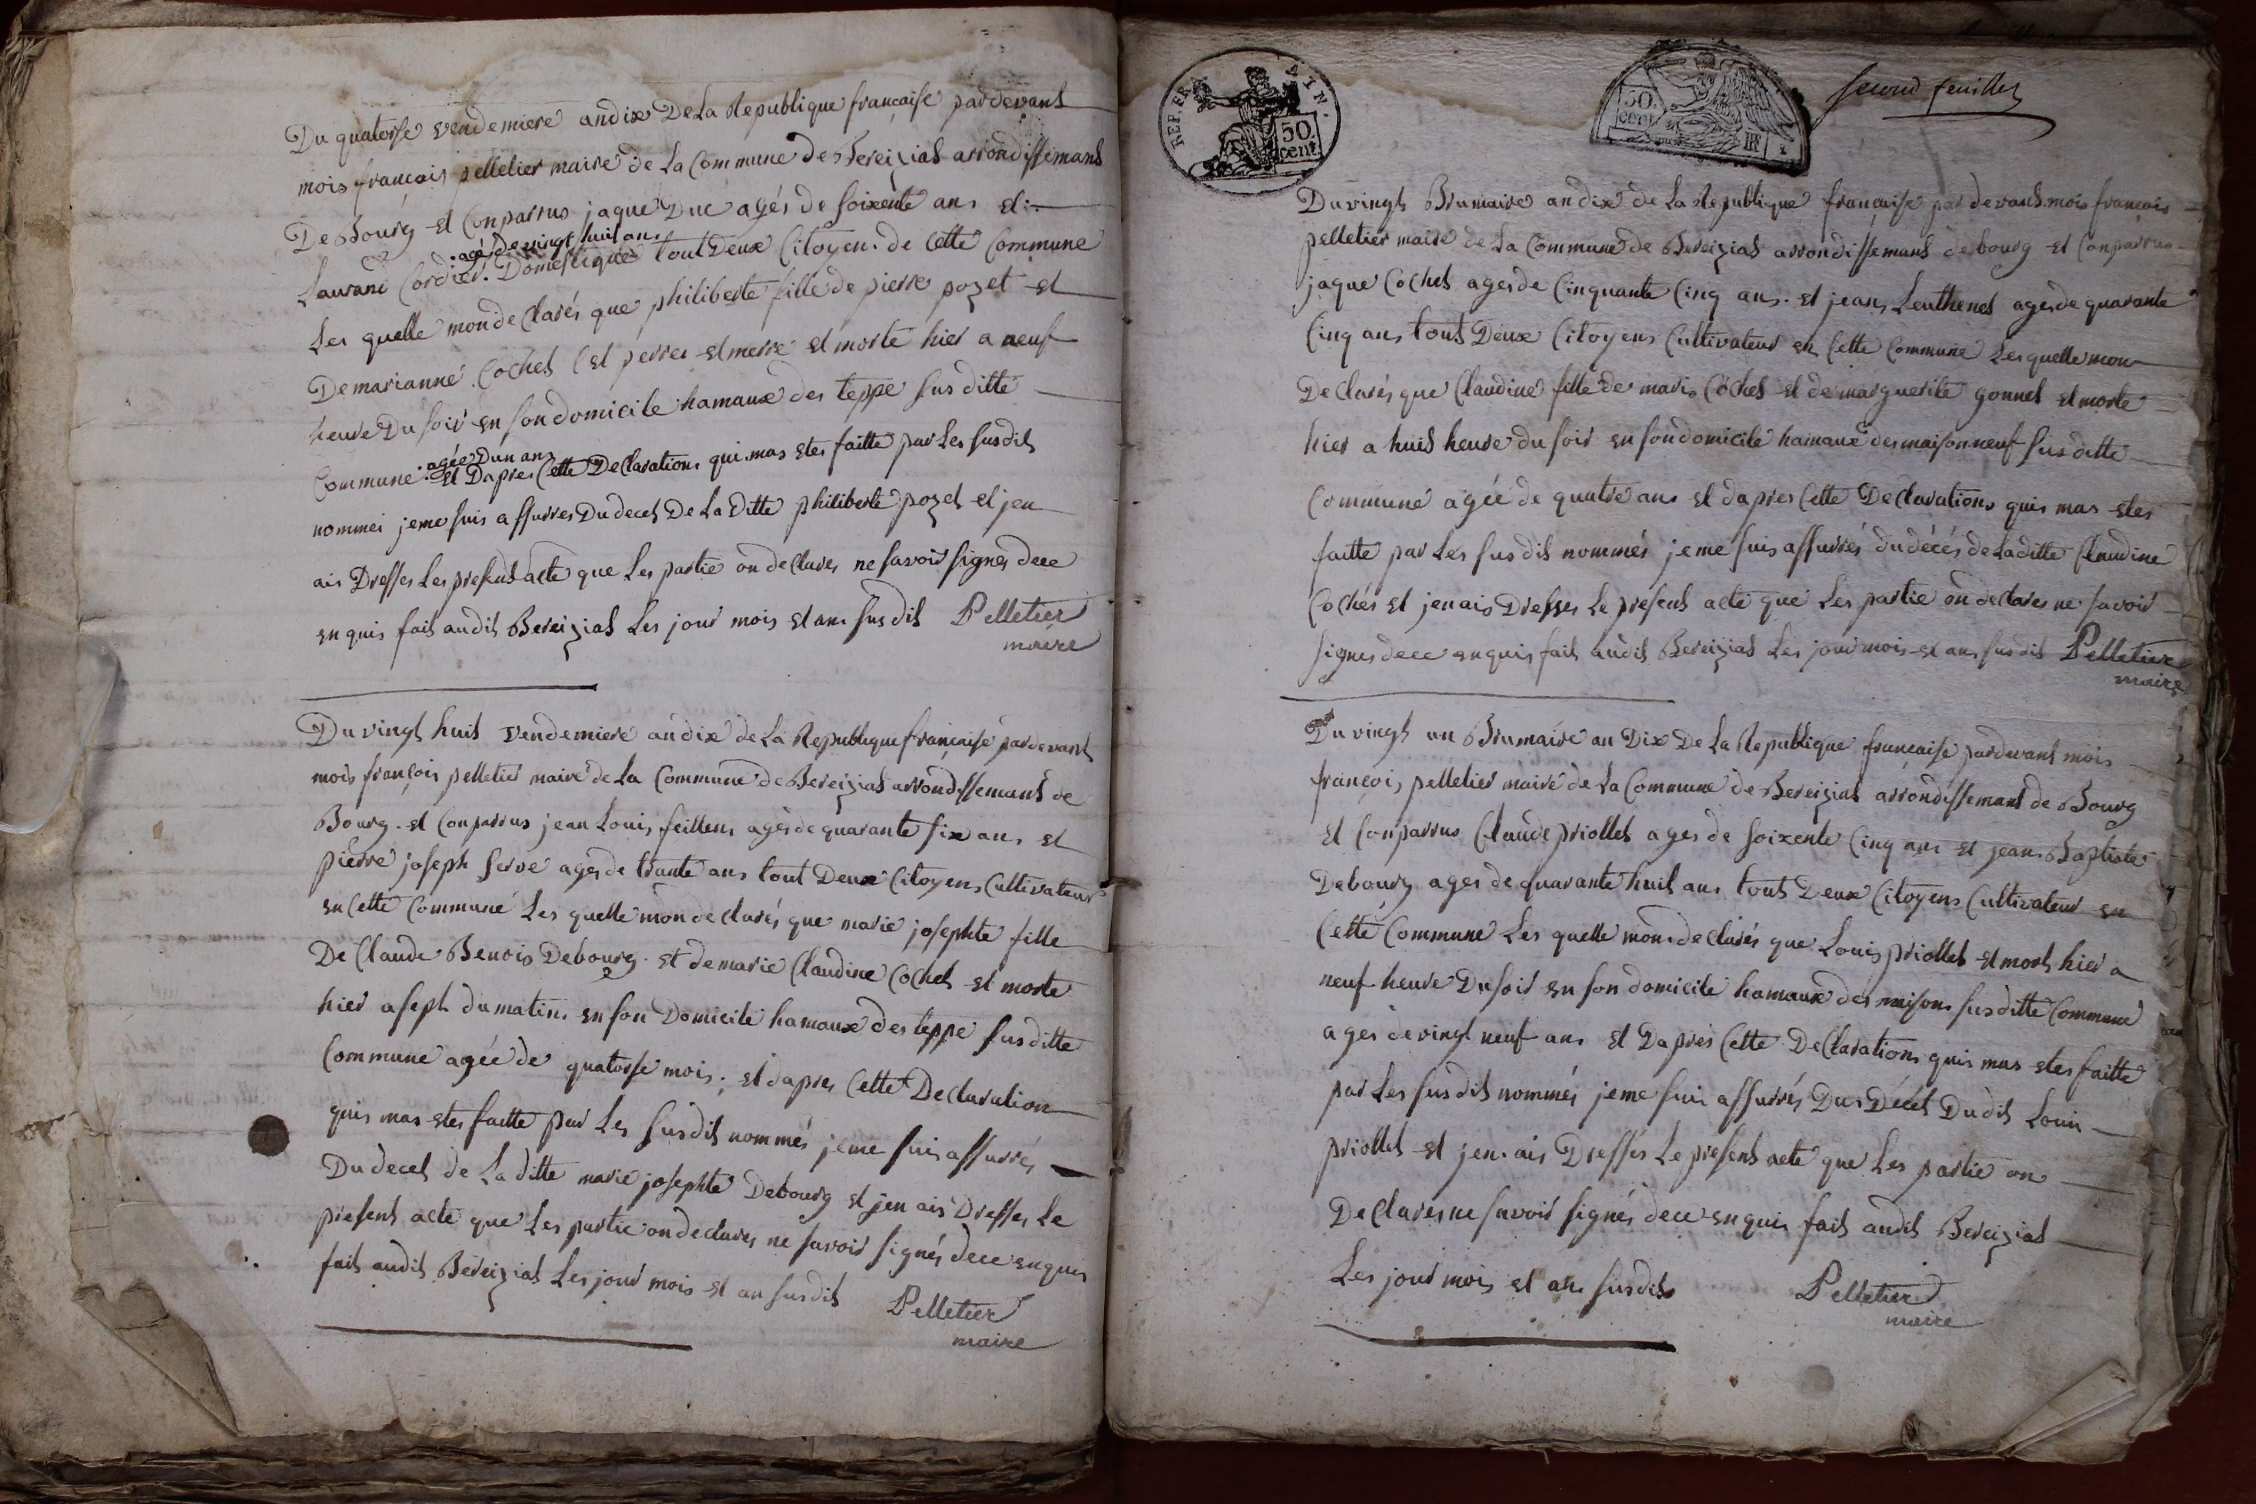 Du quatorse vendemiere an dix De La Republique française par devant
mois françois pelletier maire de La Commune de Bereiziat arrondissemant
De Bourg et Conparrus jaque Duc agés de soixente ans et
agé de vingt huit ans
Laurand Cordier. Domestique tout Deux Citoyen de Cette Commune
Les quelle mon de Clarés que philiberte fille de pierre pozet et
De marianne Cochet Cet perres et merre et morte hier a neuf
heure Du soir en son domicile hamaux des teppe susditte
agée D'un ans
Commune. et Dapres Cette De Clarations qui mas etes faitte par Les susdit
nommei je me suis assurres Du decet De La Ditte philiberte pozet et jen
ais Dresses Les present acte que Les partie on de Clares ne savoir signes dece
en quis fait audit Bereiziat Les jour mois et ans susdit Pelletier
maire
Du vingt huit vendemiere an dix de La Republique française par devant
mois françois pelletier maire de La Commune de Bereiziat arrondissemant de
Bourg. et Conparrus jean Louis feillens agés de quarante six ans et
pierre joseph serve ages de trante ans tout Deux Citoyens Cultivateur
en Cette Commune Les quelle mon de Clarés que marie josephte fille
De Claude Benois Debourg. et de marie Claudine Cochet et morte
hier a sept du matin en son Domicile hamaux des teppe susditte
Commune agée de quatorse mois; et dapres Cette De Claration
quis mas etes faitte par Les susdit nommés je me suis assurrés
Du decet de La ditte marie josephte Debourg et jen ais Dresses Le
present acte que Les partie on declares ne savoir signés dece enquis
fait audit Bereiziat Les jour mois et an susdit Pelletier
maire
REP. FRA AIN.
50 cent.
50. cent. RF
second feuillet
Du vingt Brumaire an dix de La Republique française par devant mois françois
pelletier maire de La Commune de Bereiziat arrondissemant de bourg et Conparrus
jaque Cochet ages de Cinquante Cinq ans. et jean Leuthenet ages de quarante
Cinq ans tout Deux Citoyens Cultivateur en Cette Commune Les quelle mon
De Clarés que Claudine fille de maris Cochet et de marguerite gonnet et morte
hier a huit heure du soir en son domicile hamaux des maison neuf susditte
Commune agée de quatre ans et dapres Cette De Clarations quis mas etes
faitte par Les susdit nommés je me suis assurrés du décés de Laditte Claudine
Cochés et jen ais Dresses Le present acte que Les partie on de Clares ne savoir
signes dece enquis fait audit Bereiziat Les jour mois et ans susdit Pelletier
maire
Du vingt un Brumaire an Dix De La Republique française par devant mois
françois pelletier maire de La Commune de Bereiziat arrondissemant de Bourg
et Conparrus Claude priollet ages de soixente Cinq ans et jean Baptiste
Debourg ages de quarante huit ans tout Deux Citoyens Cultivateur en
Cette Commune Les quelle mon de Clarés que Louis priollet et mort hier a
neuf heure Du soir en son domicile hamaux des maisons susditte Commune
ages de vingt neuf ans et Dapres Cette De Clarations quis mas etes faitte
par Les susdit nommés je me suis assurrés Dus Décet Dudit Louis
priollet et jen. ais Dressés Le present acte que Les partie on
De Clares ne savoir signés dece enquis fait audit Bereiziat
Les jour mois et ans susdits Pelletier
maire